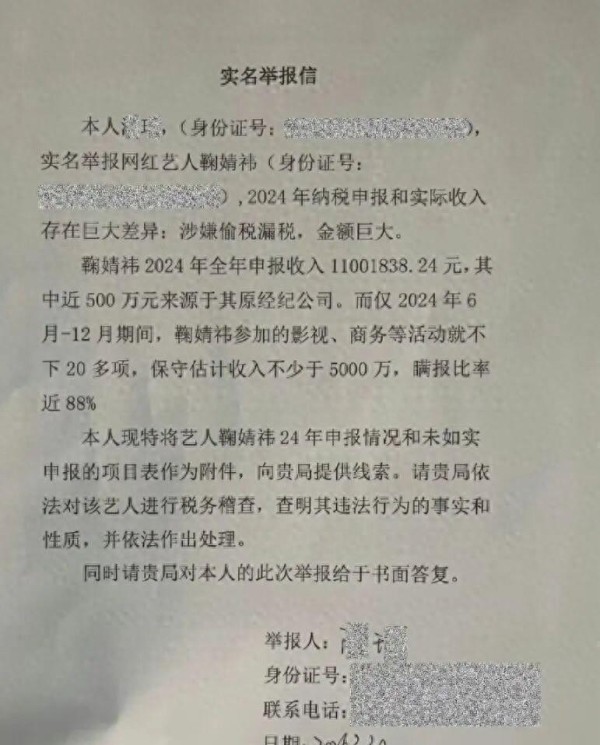 实名举报信
本人,（身份证号：),
实名举报网红艺人鞠婧祎（身份证号：
）,2024年纳税申报和实际收入
存在巨大差异：涉嫌偷税漏税，金额巨大。
鞠婧祎2024年全年申报收入11001838.24元，其
中近500万元来源于其原经纪公司。而仅2024年6
月-12月期间，鞠婧祎参加的影视、商务等活动就不
下20多项，保守估计收入不少于5000万，瞒报比率
近88%
本人现特将艺人鞠婧祎24年申报情况和未如实
申报的项目表作为附件，向贵局提供线索。请贵局依
法对该艺人进行税务稽查，查明其违法行为的事实和
性质，并依法作出处理。
同时请贵局对本人的此次举报给于书面答复。
举报人：
身份证号：
联系电话：
日期：